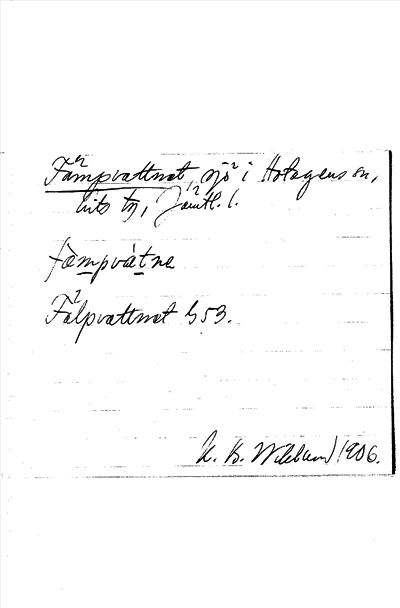 Fämpvattnet, sjö i Hotagens sn,
Lits tg, Jämtl. l.
fæmpvátne
Fälpvattnet G 53.
K. B. Wiklund 1906.